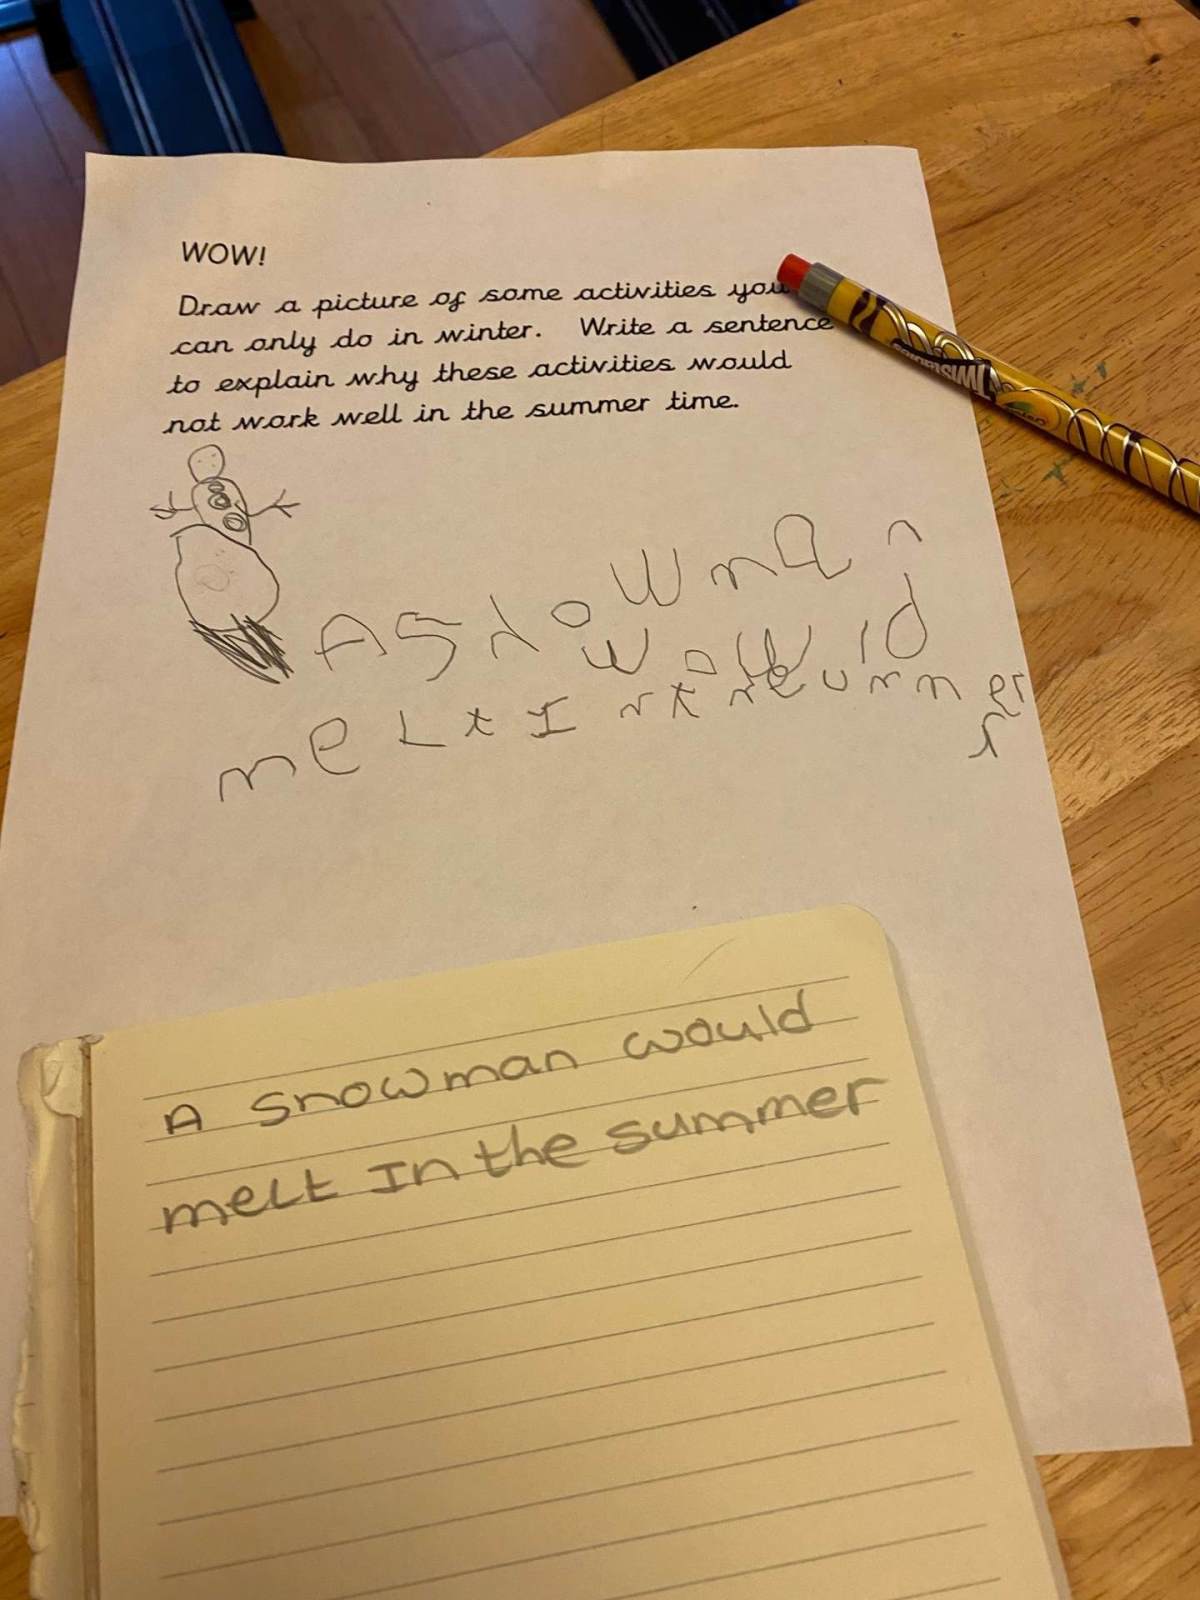 WOW!
Draw a picture of some activities you
can only do in winter. Write a sentence
to explain why these activities would
not work well in the summer time.
A Snowman
would
meLt In
A snowman would
meLt In the summer
TWISTABLES